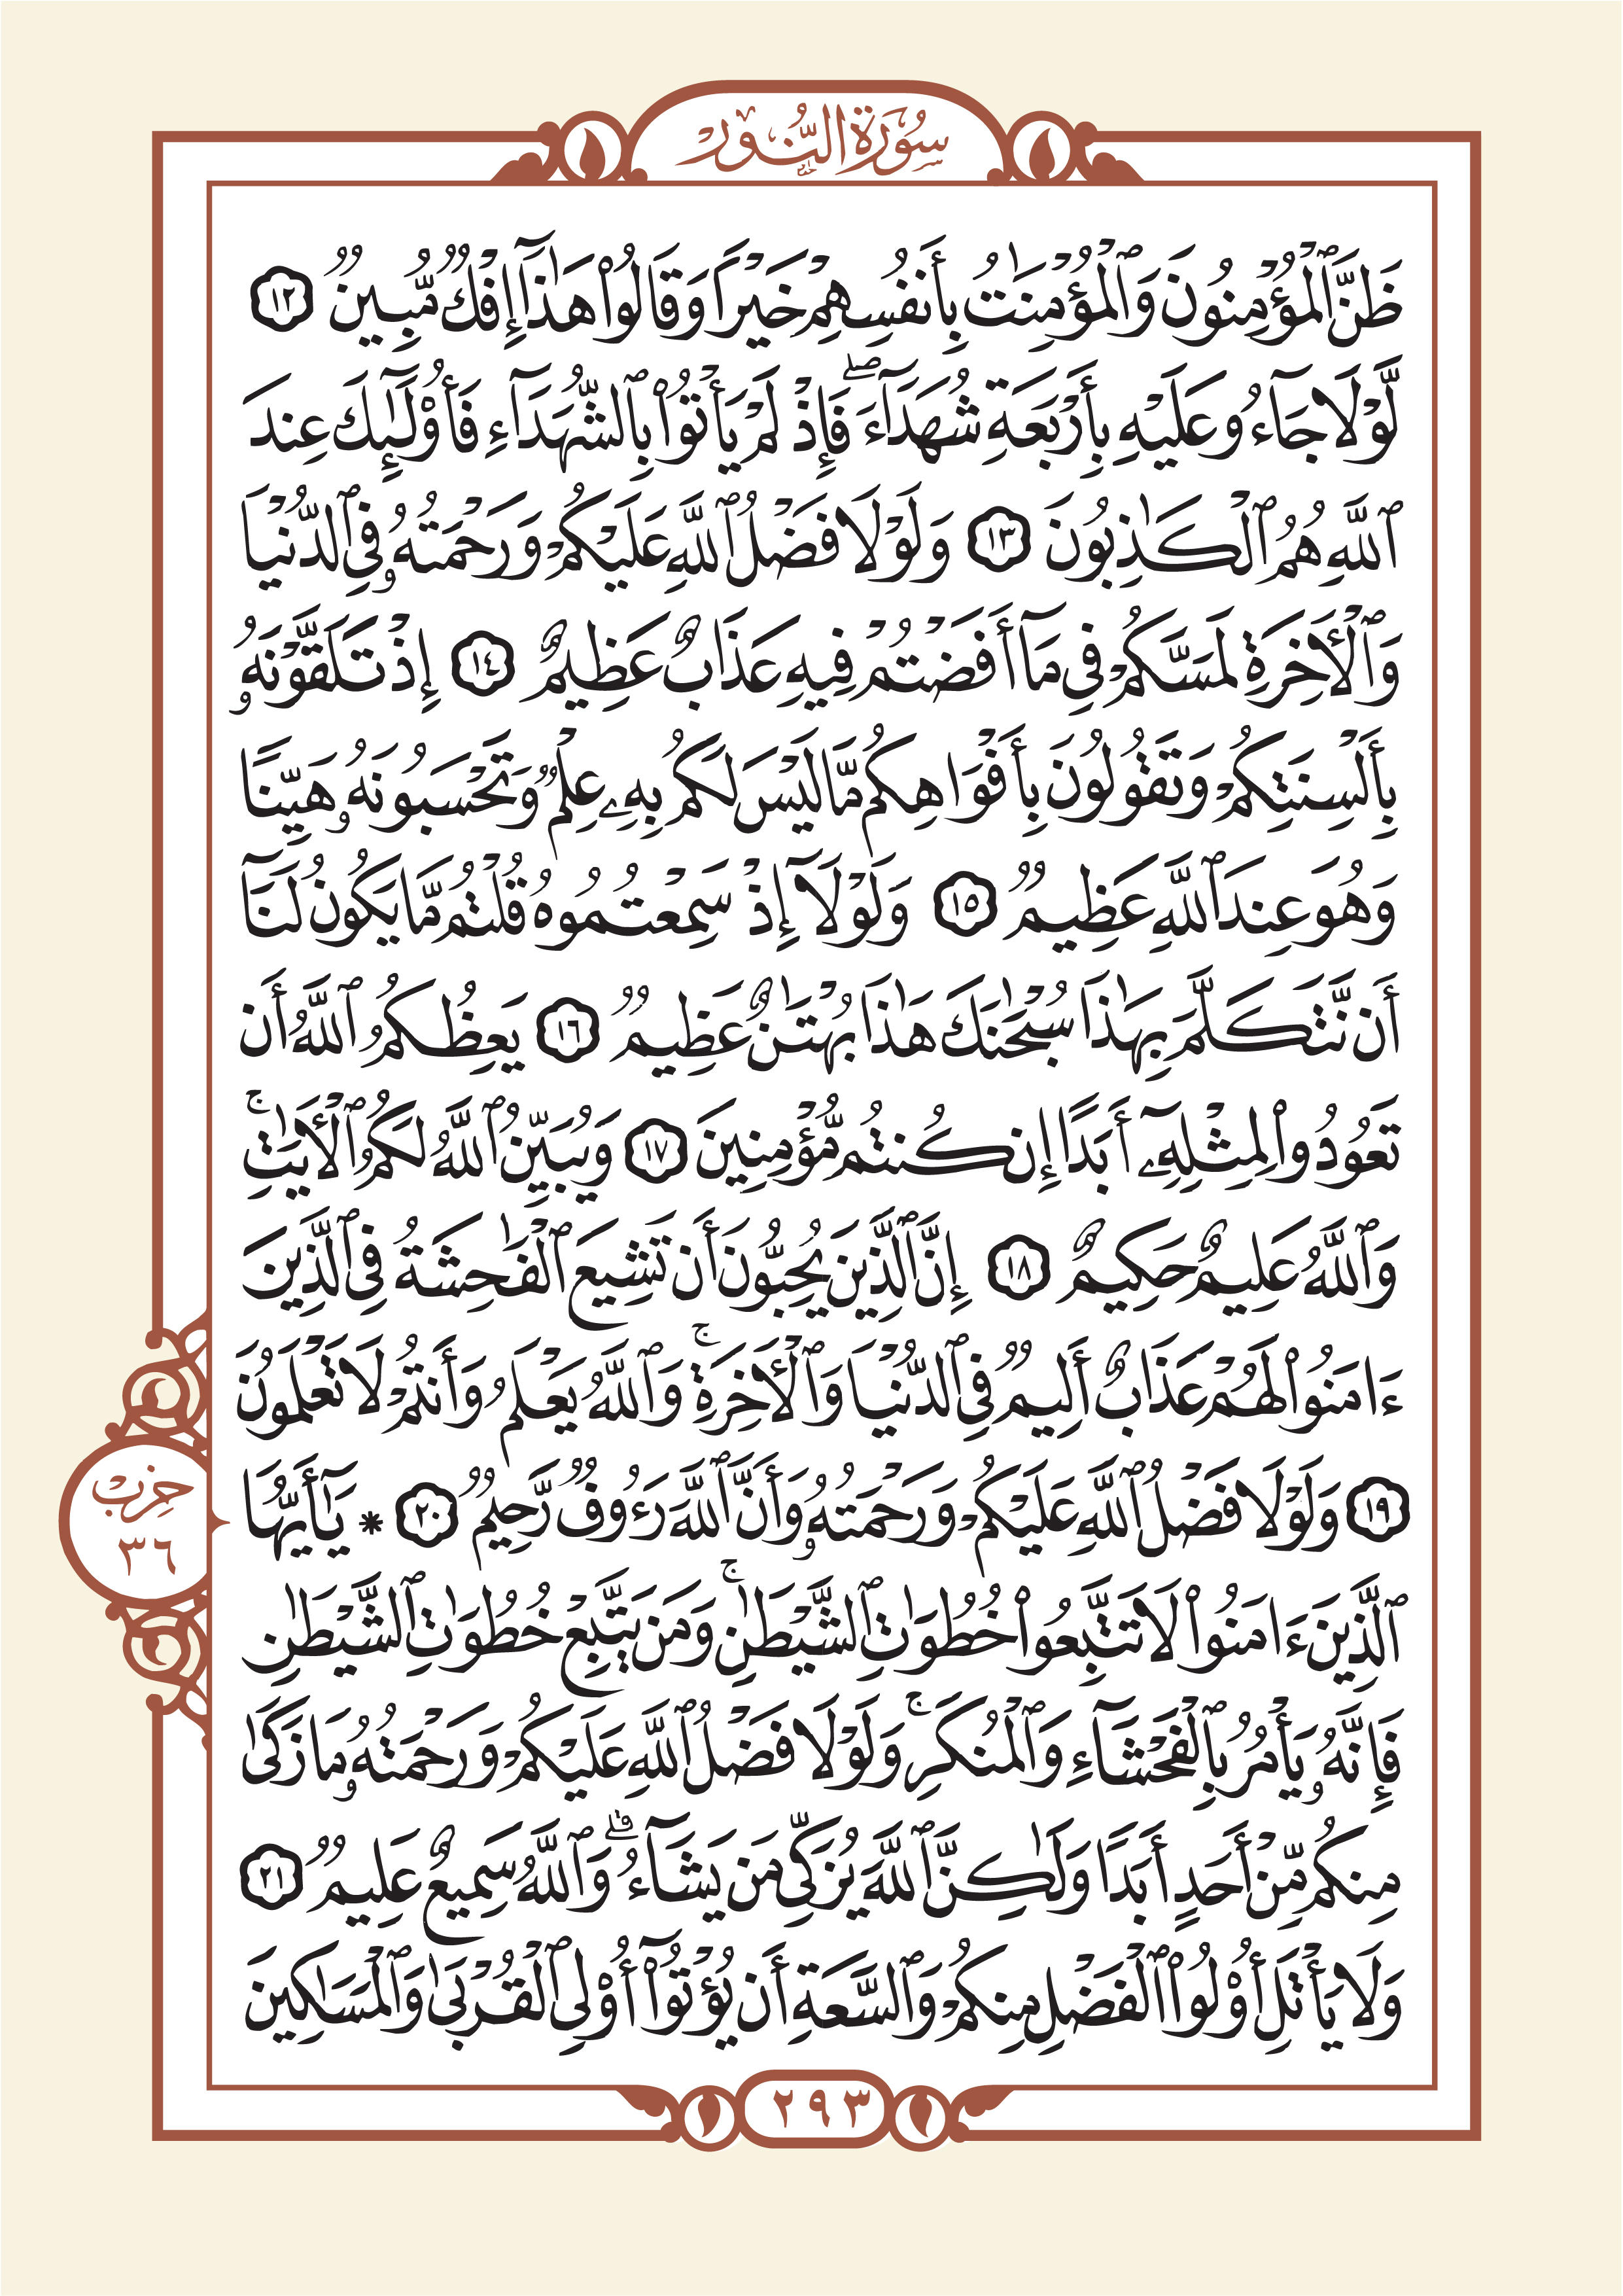 سُورَةُ النُّورِ
ظَنَّ ٱلْمُؤْمِنُونَ وَٱلْمُؤْمِنَٰتُ بِأَنفُسِهِمْ خَيْرًا وَقَالُوا۟ هَٰذَآ إِفْكٌ مُّبِينٌ ١٢
لَّوْلَا جَآءُو عَلَيْهِ بِأَرْبَعَةِ شُهَدَآءَ ۖ فَإِذْ لَمْ يَأْتُوا۟ بِٱلشُّهَدَآءِ فَأُو۟لَٰٓئِكَ عِندَ
ٱللَّهِ هُمُ ٱلْكَٰذِبُونَ ١٣ وَلَوْلَا فَضْلُ ٱللَّهِ عَلَيْكُمْ وَرَحْمَتُهُۥ فِى ٱلدُّنْيَا
وَٱلْأَخِرَةِ لَمَسَّكُمْ فِى مَآ أَفَضْتُمْ فِيهِ عَذَابٌ عَظِيمٌ ١٤ إِذْ تَلَقَّوْنَهُۥ
بِأَلْسِنَتِكُمْ وَتَقُولُونَ بِأَفْوَاهِكُم مَّا لَيْسَ لَكُم بِهِۦ عِلْمٌ وَتَحْسَبُونَهُۥ هَيِّنًا
وَهُوَ عِندَ ٱللَّهِ عَظِيمٌ ١٥ وَلَوْلَآ إِذْ سَمِعْتُمُوهُ قُلْتُم مَّا يَكُونُ لَنَآ
أَن نَّتَكَلَّمَ بِهَٰذَا سُبْحَٰنَكَ هَٰذَا بُهْتَٰنٌ عَظِيمٌ ١٦ يَعِظُكُمُ ٱللَّهُ أَن
تَعُودُوا۟ لِمِثْلِهِۦٓ أَبَدًا إِن كُنتُم مُّؤْمِنِينَ ١٧ وَيُبَيِّنُ ٱللَّهُ لَكُمُ ٱلْأَيَٰتِ ۚ
وَٱللَّهُ عَلِيمٌ حَكِيمٌ ١٨ إِنَّ ٱلَّذِينَ يُحِبُّونَ أَن تَشِيعَ ٱلْفَٰحِشَةُ فِى ٱلَّذِينَ
ءَامَنُوا۟ لَهُمْ عَذَابٌ أَلِيمٌ فِى ٱلدُّنْيَا وَٱلْأَخِرَةِ ۚ وَٱللَّهُ يَعْلَمُ وَأَنتُمْ لَا تَعْلَمُونَ
١٩ وَلَوْلَا فَضْلُ ٱللَّهِ عَلَيْكُمْ وَرَحْمَتُهُۥ وَأَنَّ ٱللَّهَ رَءُوفٌ رَّحِيمٌ ٢٠ * يَٰٓأَيُّهَا
ٱلَّذِينَ ءَامَنُوا۟ لَا تَتَّبِعُوا۟ خُطُوَٰتِ ٱلشَّيْطَٰنِ ۚ وَمَن يَتَّبِعْ خُطُوَٰتِ ٱلشَّيْطَٰنِ
فَإِنَّهُۥ يَأْمُرُ بِٱلْفَحْشَآءِ وَٱلْمُنكَرِ ۚ وَلَوْلَا فَضْلُ ٱللَّهِ عَلَيْكُمْ وَرَحْمَتُهُۥ مَا زَكَىٰ
مِنكُم مِّنْ أَحَدٍ أَبَدًا وَلَٰكِنَّ ٱللَّهَ يُزَكِّى مَن يَشَآءُ ۗ وَٱللَّهُ سَمِيعٌ عَلِيمٌ ٢١
وَلَا يَأْتَلِ أُو۟لُوا۟ ٱلْفَضْلِ مِنكُمْ وَٱلسَّعَةِ أَن يُؤْتُوٓا۟ أُو۟لِى ٱلْقُرْبَىٰ وَٱلْمَسَٰكِينَ
حِزْب
٣٦
٢٩٣